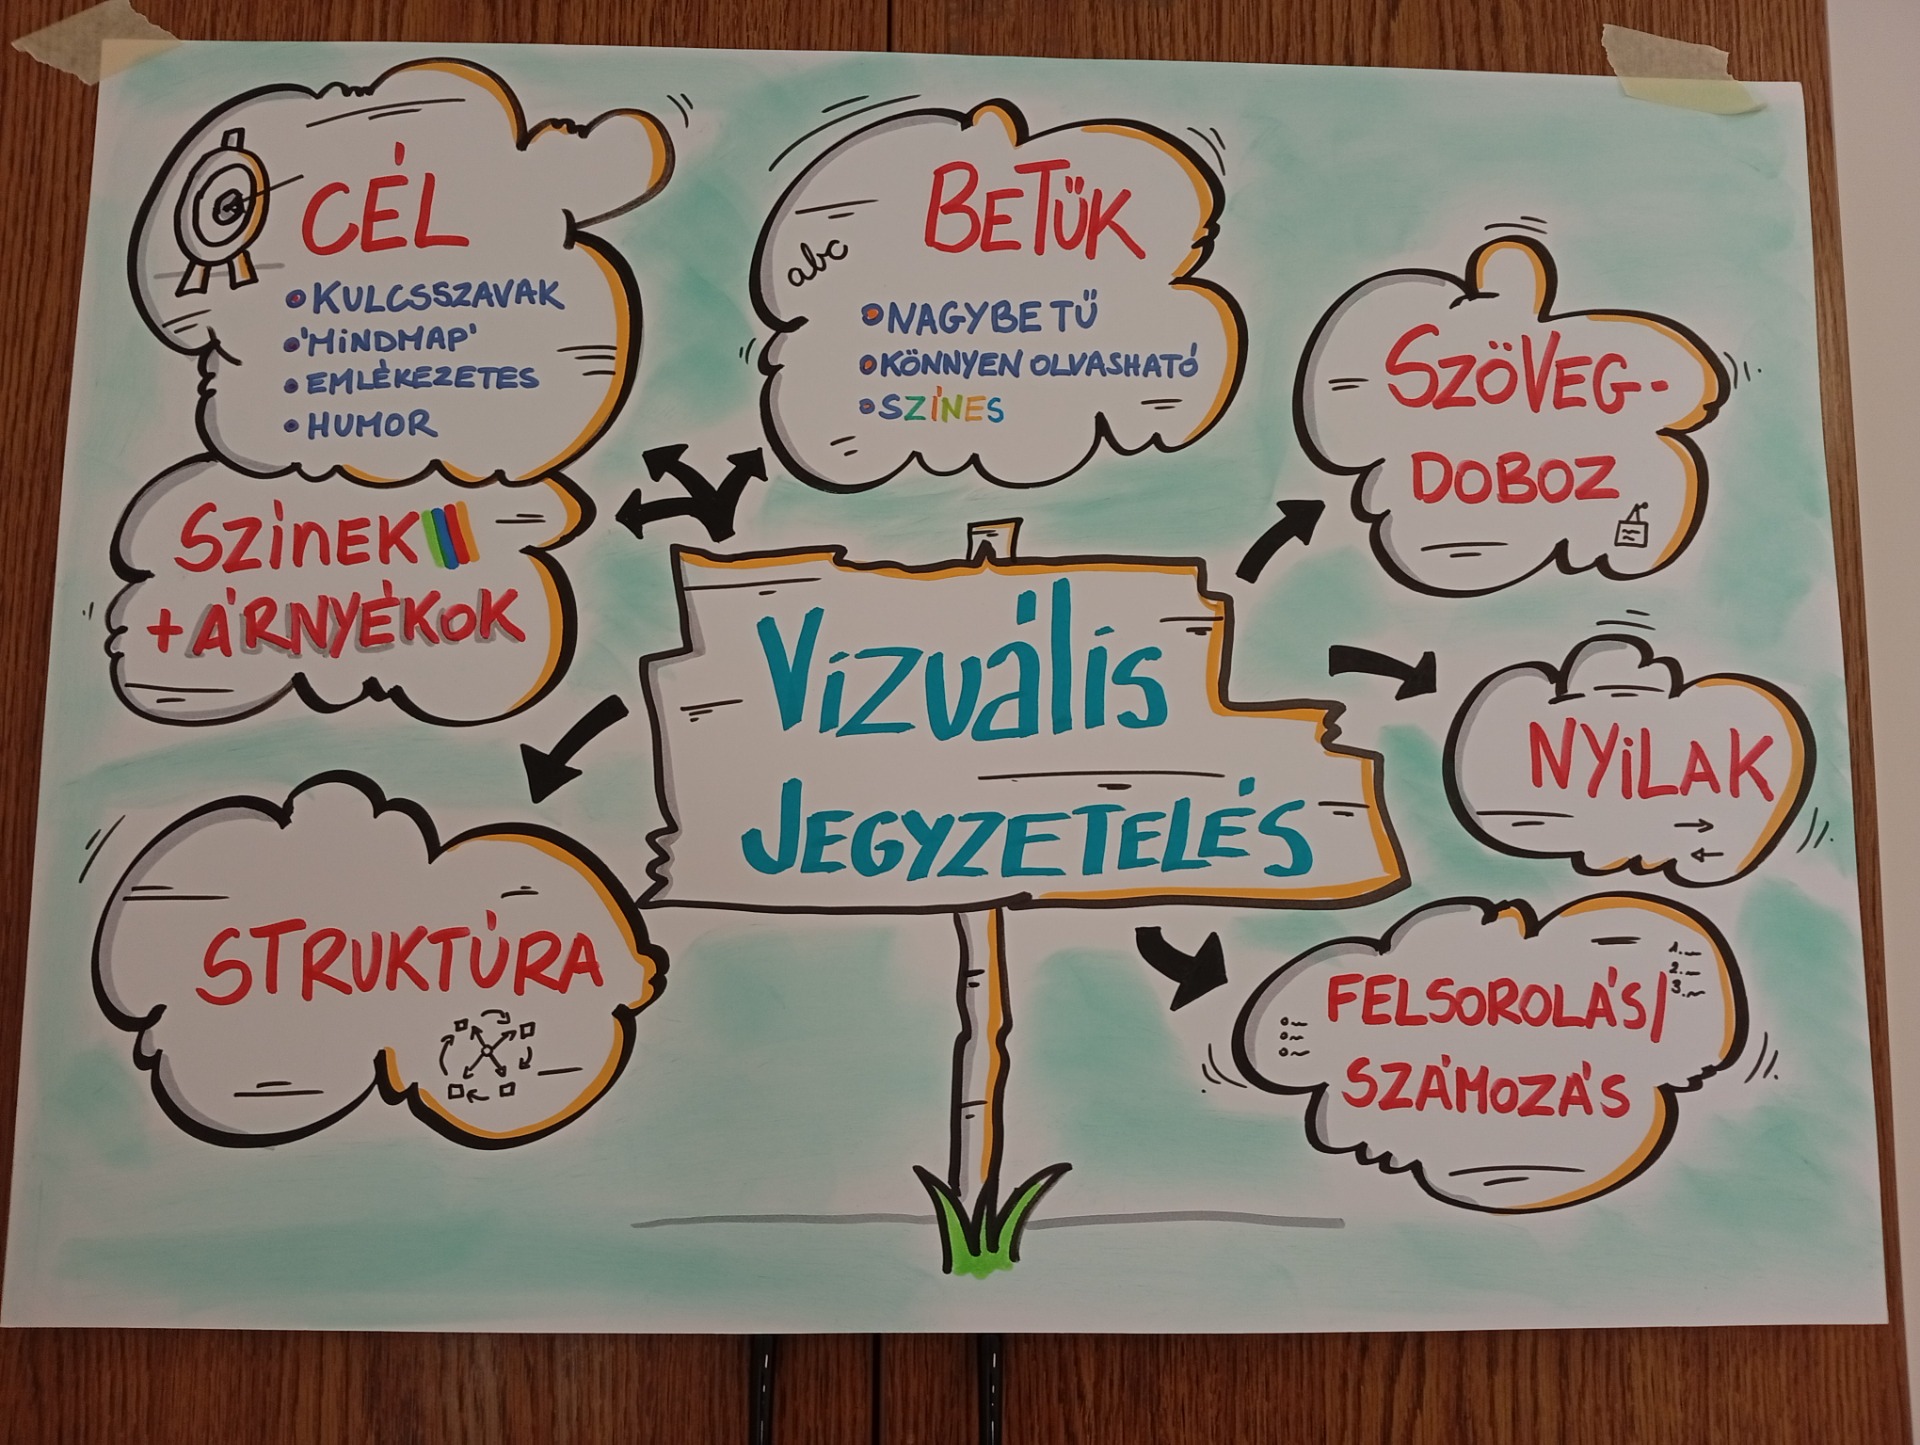 CÉL
• KULCSSZAVAK
• 'MINDMAP'
• EMLÉKEZETES
• HUMOR
abc
BETŰK
• NAGYBETŰ
• KÖNNYEN OLVASHATÓ
• SZÍNES
SZÖVEG-
DOBOZ
SZÍNEK
+ ÁRNYÉKOK
VIZUÁLIS
JEGYZETELÉS
NYILAK
STRUKTÚRA
FELSOROLÁS/
SZÁMOZÁS
1.
2.
3.